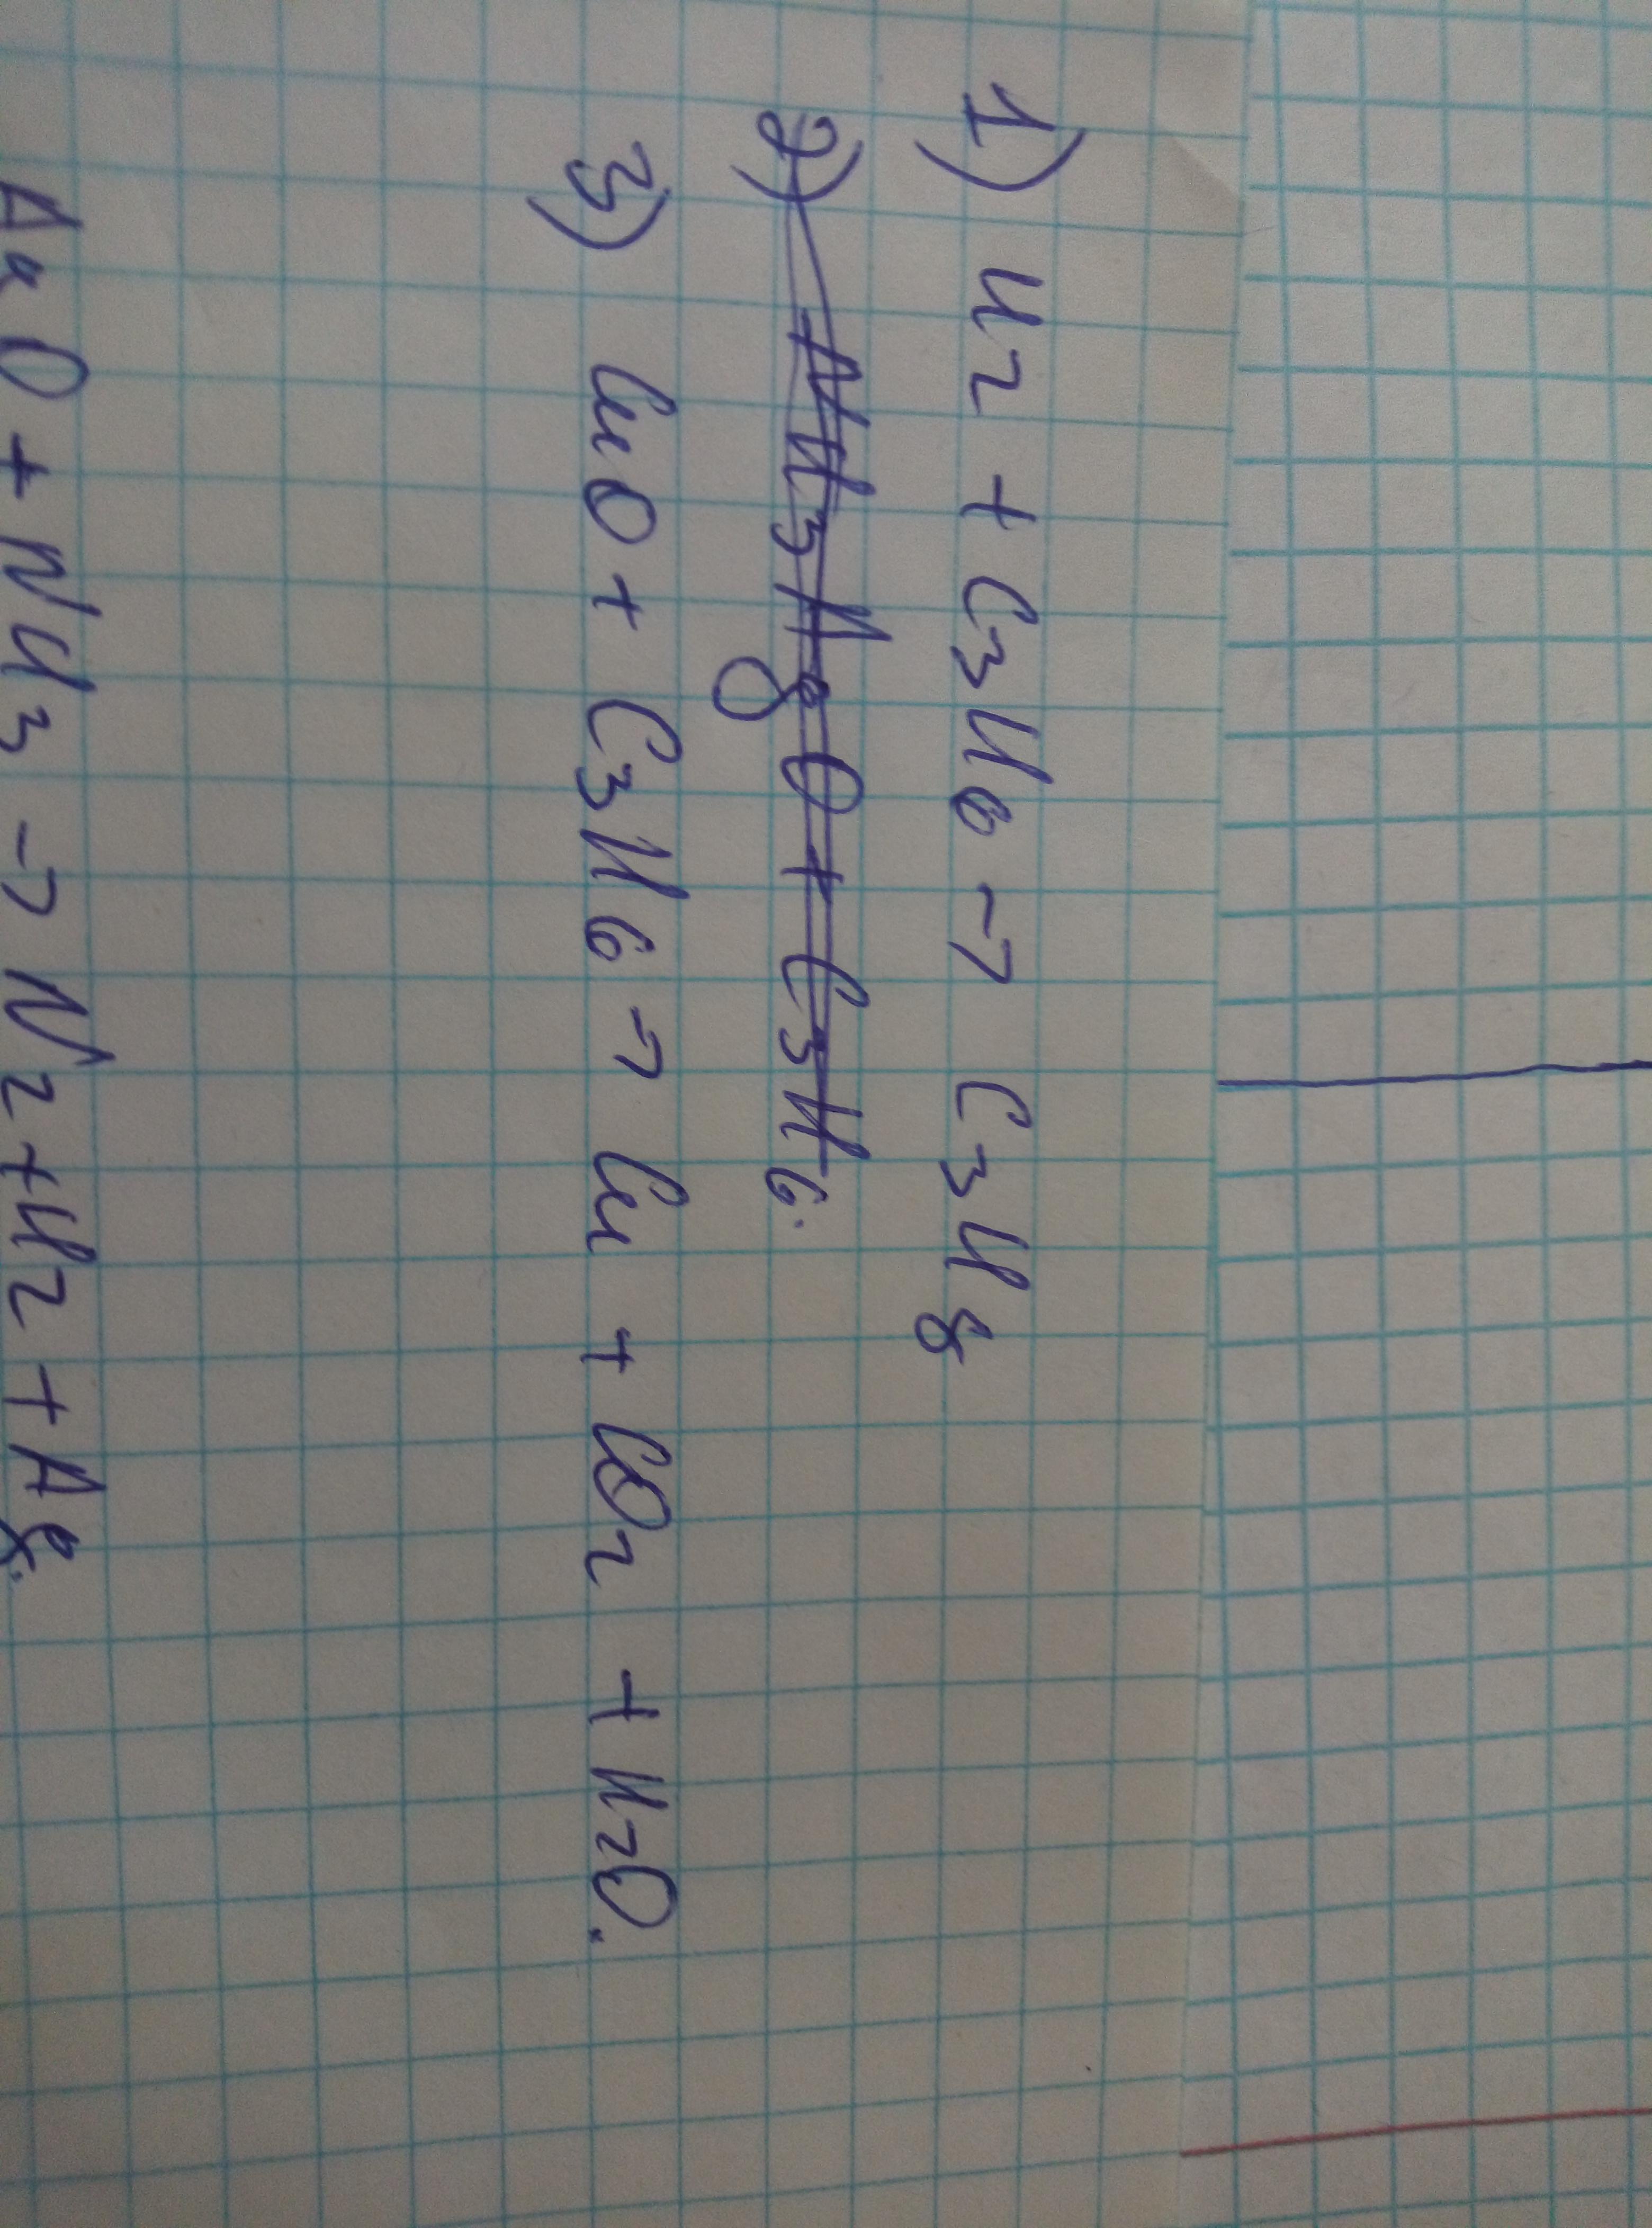 1) H2 + C3H6 → C3H8
2) NH3Ag O + C3H6.
3) CuO + C3H6 → Cu + CO2 + H2O.
AgO + NH3 → N2 + H2 + Ag.